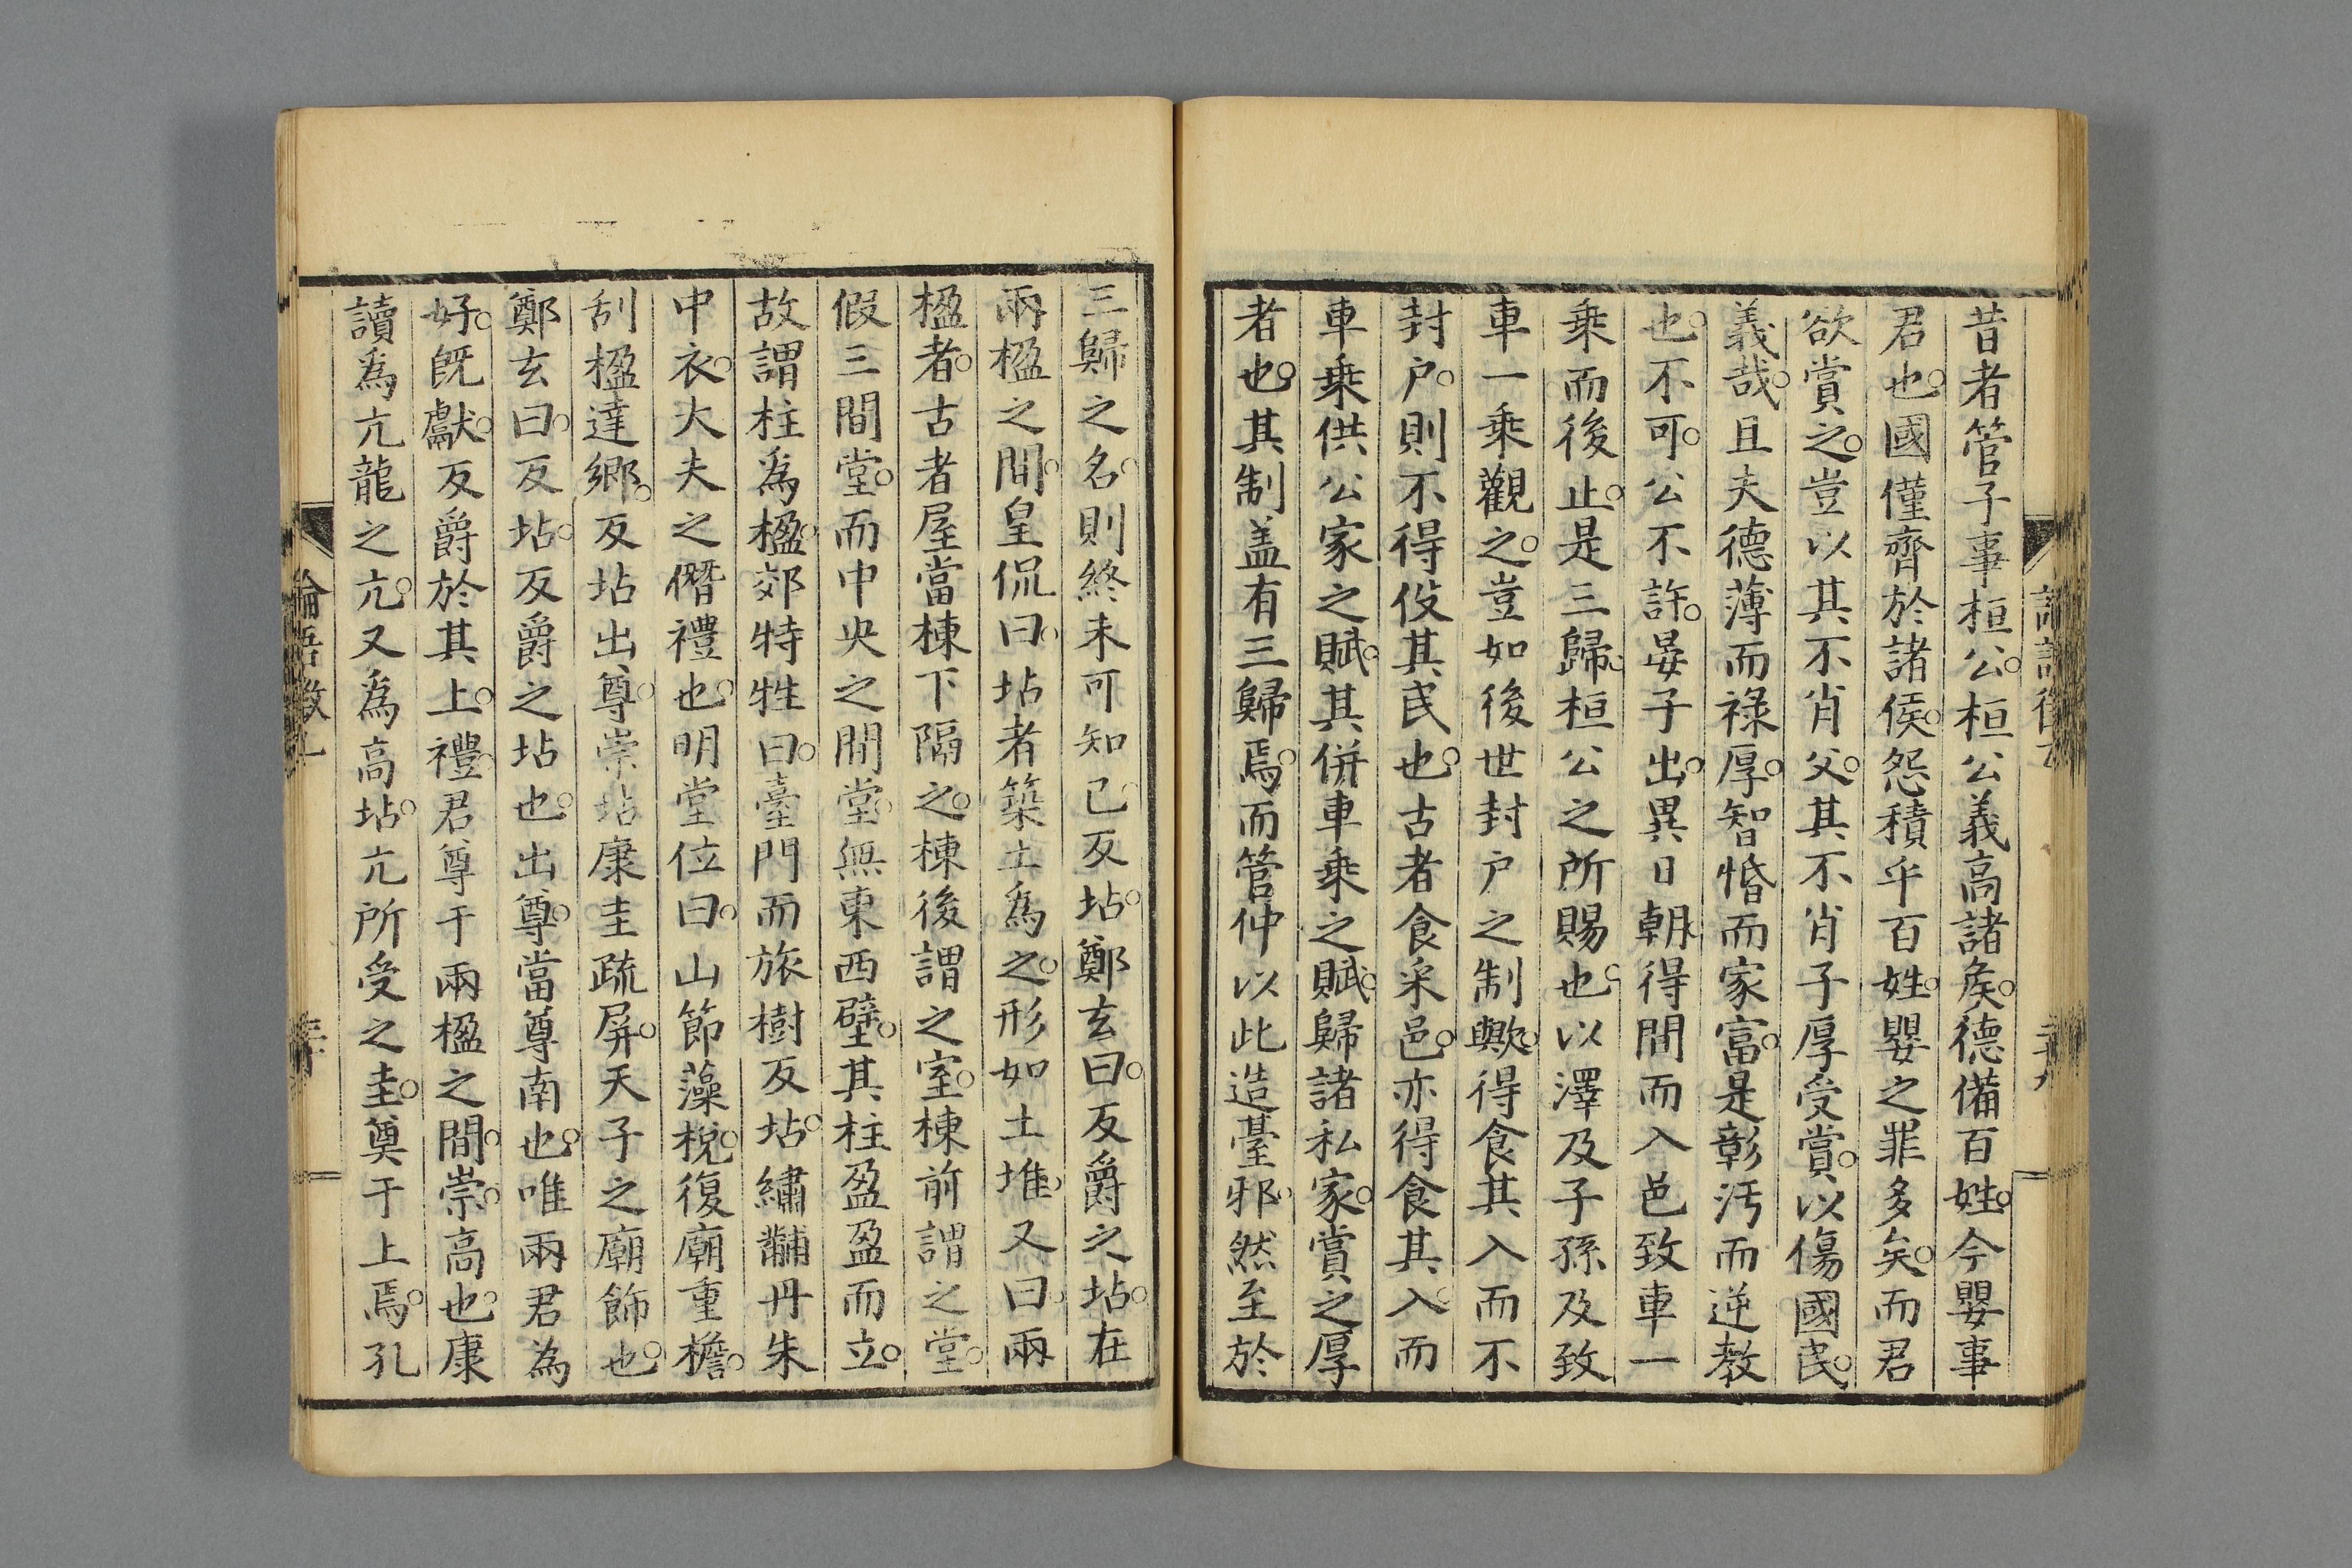 昔者管子事桓公。桓公義高諸矦。德備百姓。今嬰事
君也。國僅齊於諸侯。怨積乎百姓。嬰之罪多矣。而君
欲賞之。豈以其不肖父。其不肖子厚受賞。以傷國民
義哉。且夫德薄而祿厚。智惛而家富。是彰汚而逆教
也。不可。公不許。晏子出。異日朝。得間而入邑致車一
乘而後止。是三歸。桓公之所賜也。以澤及子孫及致
車一乘觀之。豈如後世封户之制歟。得食其入而不
封户。則不得伇其民也。古者食采邑。亦得食其入。而
車乘供公家之賦。其併車乘之賦。歸諸私家。賞之厚
者也。其制盖有三歸焉。而管仲以此造臺邪。然至於
三歸之名。則終未可知已。反坫。鄭玄曰。反爵之坫。在
兩楹之間。皇侃曰。坫者築土為之。形如土堆。又曰。兩
楹者。古者屋當棟下隔之。棟後謂之室。棟前謂之堂。
假三間堂。而中央之間堂。無東西壁。其柱盈盈而立。
故謂柱爲楹。郊特牲曰。臺門而旅樹反坫。繡黼丹朱
中衣。大夫之僭禮也。明堂位曰。山節藻梲。復廟重檐。
刮楹達鄉。反坫出尊。崇坫康圭疏屏。天子之廟飾也。
鄭玄曰。反坫。反爵之坫也。出尊。當尊南也。唯兩君為
好。既獻。反爵於其上。禮。君尊于兩楹之間。崇。高也。康
讀爲亢龍之亢。又爲高坫。亢所受之圭。奠于上焉。孔